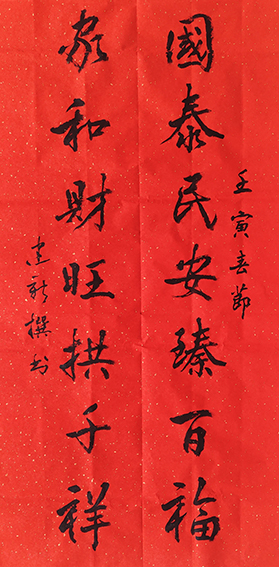 壬寅春節
國泰民安臻百福
家和財旺拱千祥
建新撰书